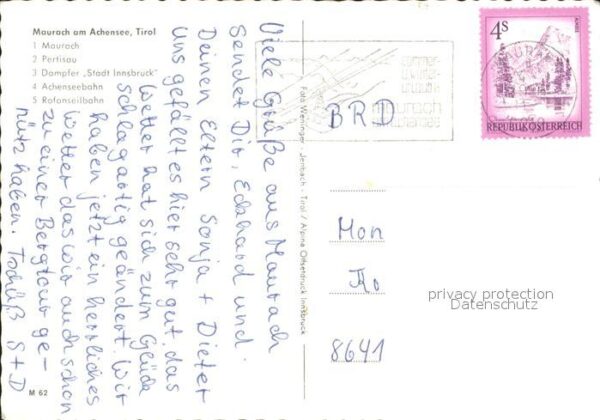 Maurach am Achensee, Tirol
1 Maurach
2 Pertisau
3 Dampfer „Stadt Innsbruck"
4 Achenseebahn
5 Rofanseilbahn
Viele Grüße aus Maurach
sendet Dir, Eckhard und
Deinen Eltern Sonja + Dieter
Uns gefällt es hier sehr gut, das
Wetter hat sich zum Glück
schlagartig geändert. Wir
haben jetzt ein herrliches
Wetter das wir auch schon
zu einer Bergtour ge-
nützt haben. Tschüß S + D
M 62
Foto Weninger - Jenbach - Tirol / Alpina Offsetdruck Innsbruck
sommer-
urlaub
maurach
4 S
REPUBLIK ÖSTERREICH
BRD
Mon
Ao
8641
privacy protection
Datenschutz